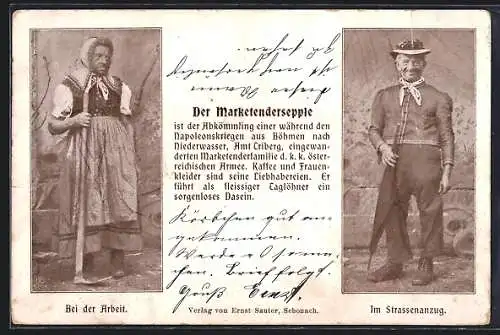 Der Marketendersepple
ist der Abkömmling einer während den
Napoleonskriegen aus Böhmen nach
Niederwasser, Amt Triberg, eingewan-
derten Marketenderfamilie d. k. k. öster-
reichischen Armee. Kaffee und Frauen-
kleider sind seine Liebhabereien. Er
führt als fleissiger Taglöhner ein
sorgenloses Dasein.
Körbchen gut an-
gekommen.
Werde es so ma-
chen. Brief folgt.
Gruß Ernst.
Bei der Arbeit.
Verlag von Ernst Sauter, Schonach.
Im Strassenanzug.